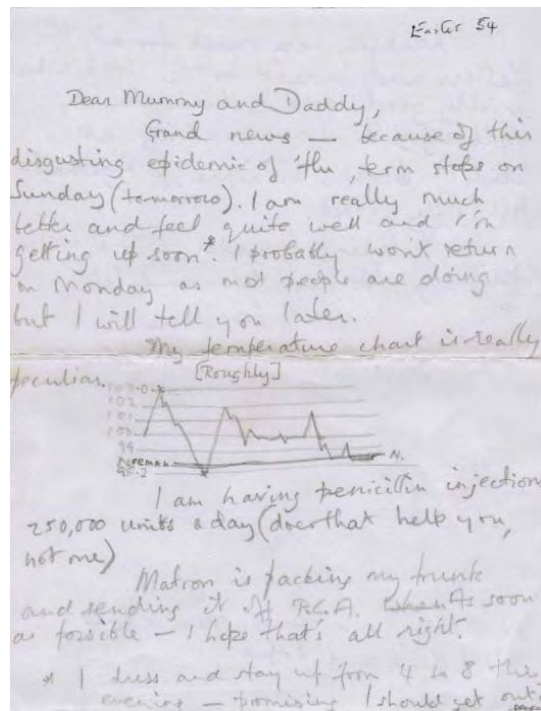 Easter 54
Dear Mummy and Daddy,
Grand news — because of this
disgusting epidemic of 'flu, term stops on
Sunday (tomorrow). I am really much
better and feel quite well and I'm
getting up soon*. I probably won't return
on Monday as most people are doing
but I will tell you later.
My temperature chart is really
peculiar.
[Roughly]
102
101
100
99
N.
I am having penicillin injection
250,000 units a day (does that help you,
not me)
Matron is packing my trunk
and sending it off P.L.A. As soon
as possible — I hope that's all right.
* I dress and stay up from 4 to 8 this
evening — promising I should get out